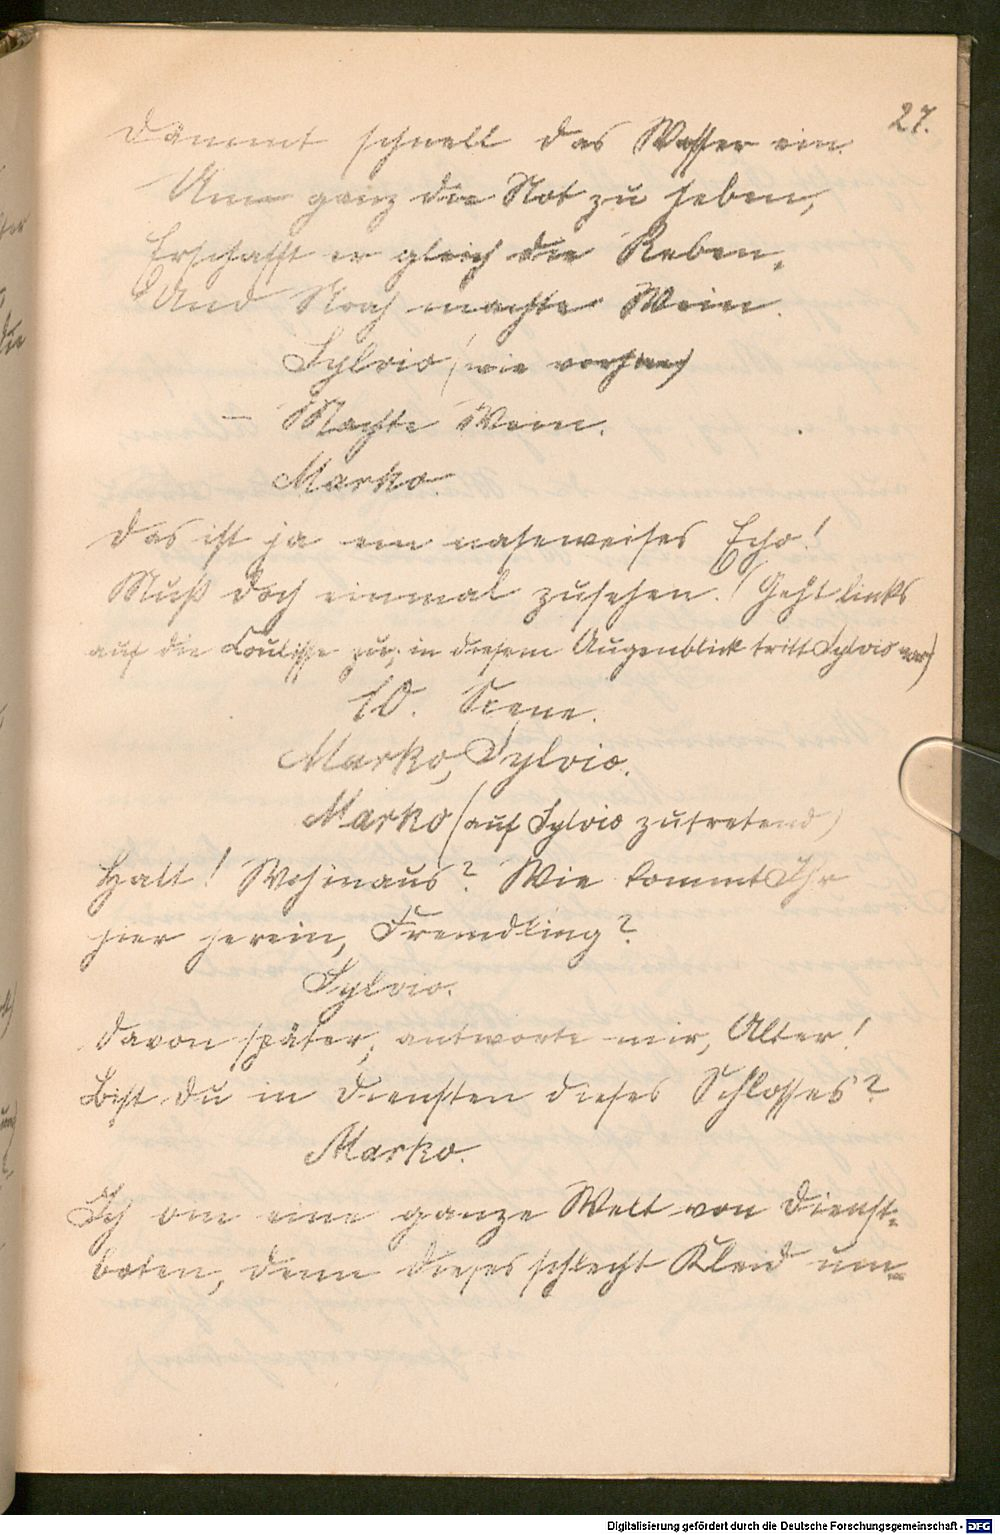 27.
Dämmt schnell das Wasser ein.
Um ganz die Not zu heben,
Erschafft er gleich die Reben,
Und Noah machte Wein.
Sylvio (wie vorhin)
– Machte Wein.
Marko.
Das ist ja ein naseweises Echo!
Muß doch einmal zusehen. (Geht links
auf die Coulisse zu; in diesem Augenblick tritt Sylvio vor)
10. Scene.
Marko, Sylvio.
Marko (auf Sylvio zutretend)
Halt! Wohinaus? Wie kommt Ihr
hier herein, Fremdling?
Sylvio.
Davon später; antworte mir, Alter!
Bist du in Diensten dieses Schlosses?
Marko.
Ich bin eine ganze Welt von Dienst-
boten, denn dieses schlecht Kleid um-
Digitalisierung gefördert durch die Deutsche Forschungsgemeinschaft - DFG